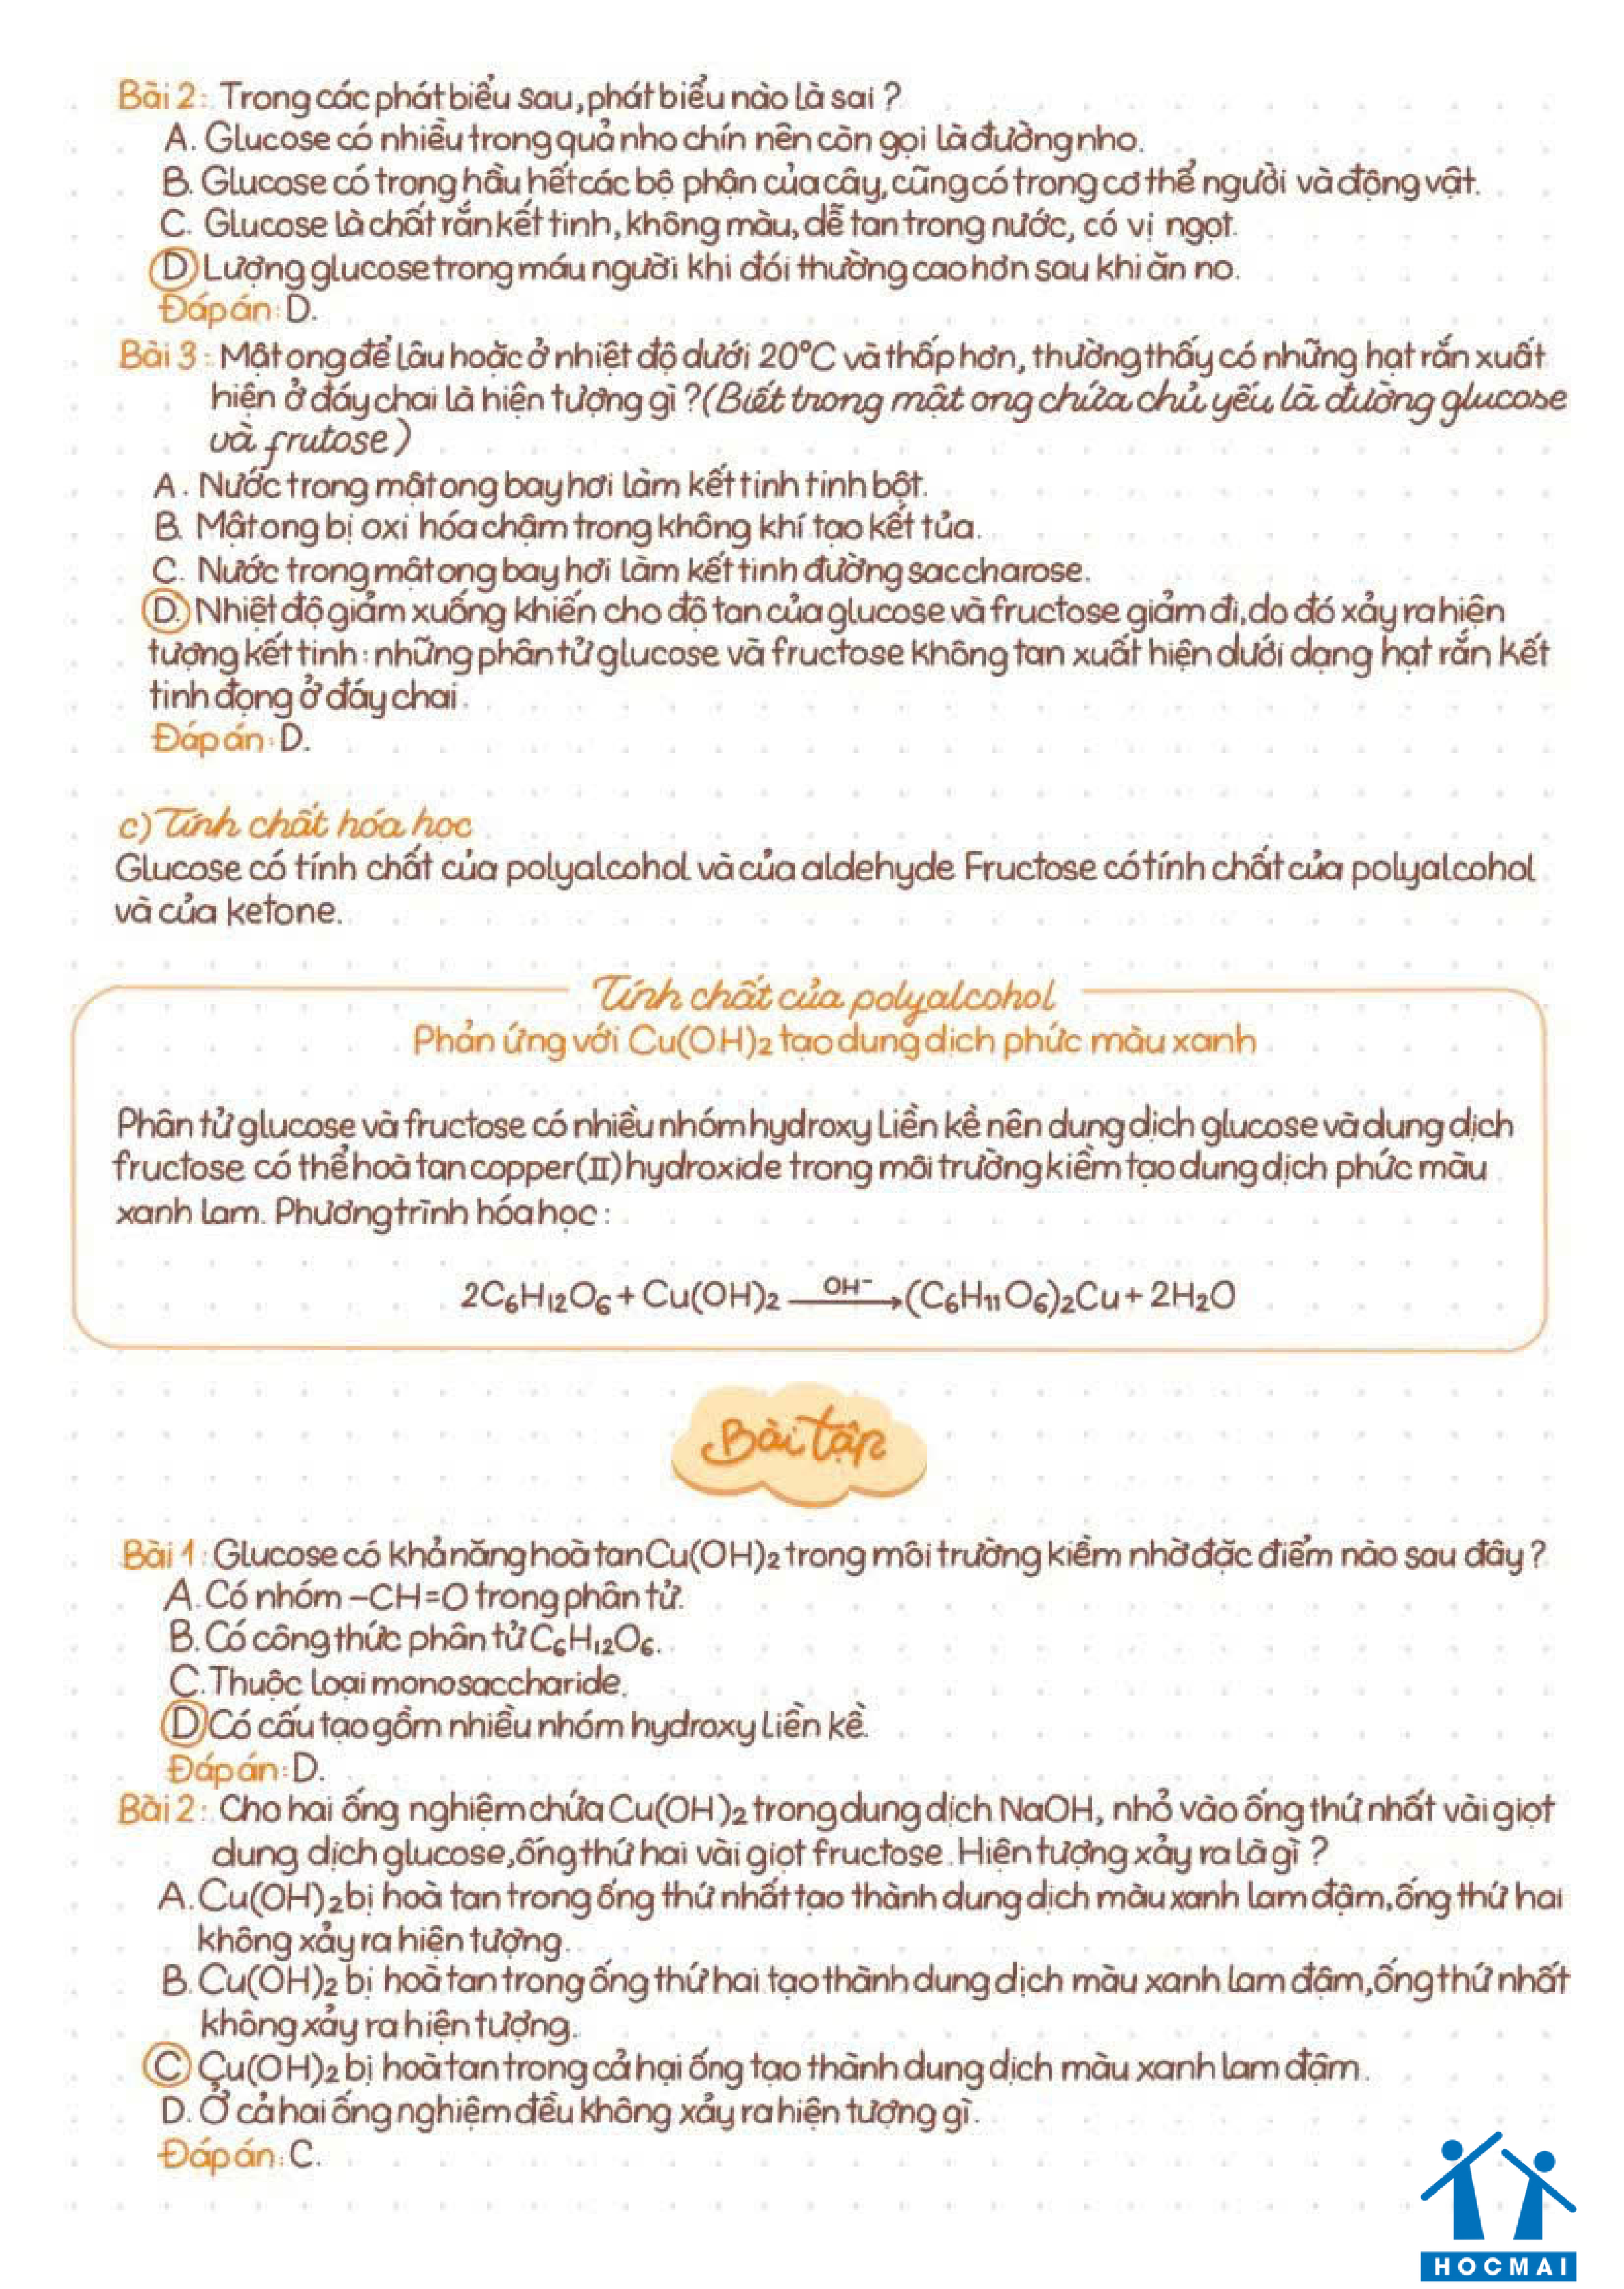 Bài 2: Trong các phát biểu sau, phát biểu nào là sai ?
A. Glucose có nhiều trong quả nho chín nên còn gọi là đường nho.
B. Glucose có trong hầu hết các bộ phận của cây, cũng có trong cơ thể người và động vật.
C. Glucose là chất rắn kết tinh, không màu, dễ tan trong nước, có vị ngọt.
D Lượng glucose trong máu người khi đói thường cao hơn sau khi ăn no.
Đáp án: D.
Bài 3: Mật ong để lâu hoặc ở nhiệt độ dưới 20°C và thấp hơn, thường thấy có những hạt rắn xuất
hiện ở đáy chai là hiện tượng gì ? (Biết trong mật ong chứa chủ yếu là đường glucose
và frutose)
A. Nước trong mật ong bay hơi làm kết tinh tinh bột.
B. Mật ong bị oxi hóa chậm trong không khí tạo kết tủa.
C. Nước trong mật ong bay hơi làm kết tinh đường saccharose.
D. Nhiệt độ giảm xuống khiến cho độ tan của glucose và fructose giảm đi, do đó xảy ra hiện
tượng kết tinh: những phân tử glucose và fructose không tan xuất hiện dưới dạng hạt rắn kết
tinh đọng ở đáy chai.
Đáp án: D.
c) Tính chất hóa học
Glucose có tính chất của polyalcohol và của aldehyde Fructose có tính chất của polyalcohol
và của ketone.
Tính chất của polyalcohol
Phản ứng với Cu(OH)₂ tạo dung dịch phức màu xanh
Phân tử glucose và fructose có nhiều nhóm hydroxy liền kề nên dung dịch glucose và dung dịch
fructose có thể hoà tan copper(II) hydroxide trong môi trường kiềm tạo dung dịch phức màu
xanh lam. Phương trình hóa học:
2C₆H₁₂O₆ + Cu(OH)₂ —OH⁻→ (C₆H₁₁O₆)₂Cu + 2H₂O
Bài tập
Bài 1: Glucose có khả năng hoà tan Cu(OH)₂ trong môi trường kiềm nhờ đặc điểm nào sau đây ?
A. Có nhóm –CH=O trong phân tử.
B. Có công thức phân tử C₆H₁₂O₆.
C. Thuộc loại monosaccharide.
D Có cấu tạo gồm nhiều nhóm hydroxy liền kề.
Đáp án: D.
Bài 2: Cho hai ống nghiệm chứa Cu(OH)₂ trong dung dịch NaOH, nhỏ vào ống thứ nhất vài giọt
dung dịch glucose, ống thứ hai vài giọt fructose. Hiện tượng xảy ra là gì ?
A. Cu(OH)₂ bị hoà tan trong ống thứ nhất tạo thành dung dịch màu xanh lam đậm, ống thứ hai
không xảy ra hiện tượng.
B. Cu(OH)₂ bị hoà tan trong ống thứ hai tạo thành dung dịch màu xanh lam đậm, ống thứ nhất
không xảy ra hiện tượng.
C Cu(OH)₂ bị hoà tan trong cả hại ống tạo thành dung dịch màu xanh lam đậm.
D. Ở cả hai ống nghiệm đều không xảy ra hiện tượng gì.
Đáp án: C.
HOCMAI